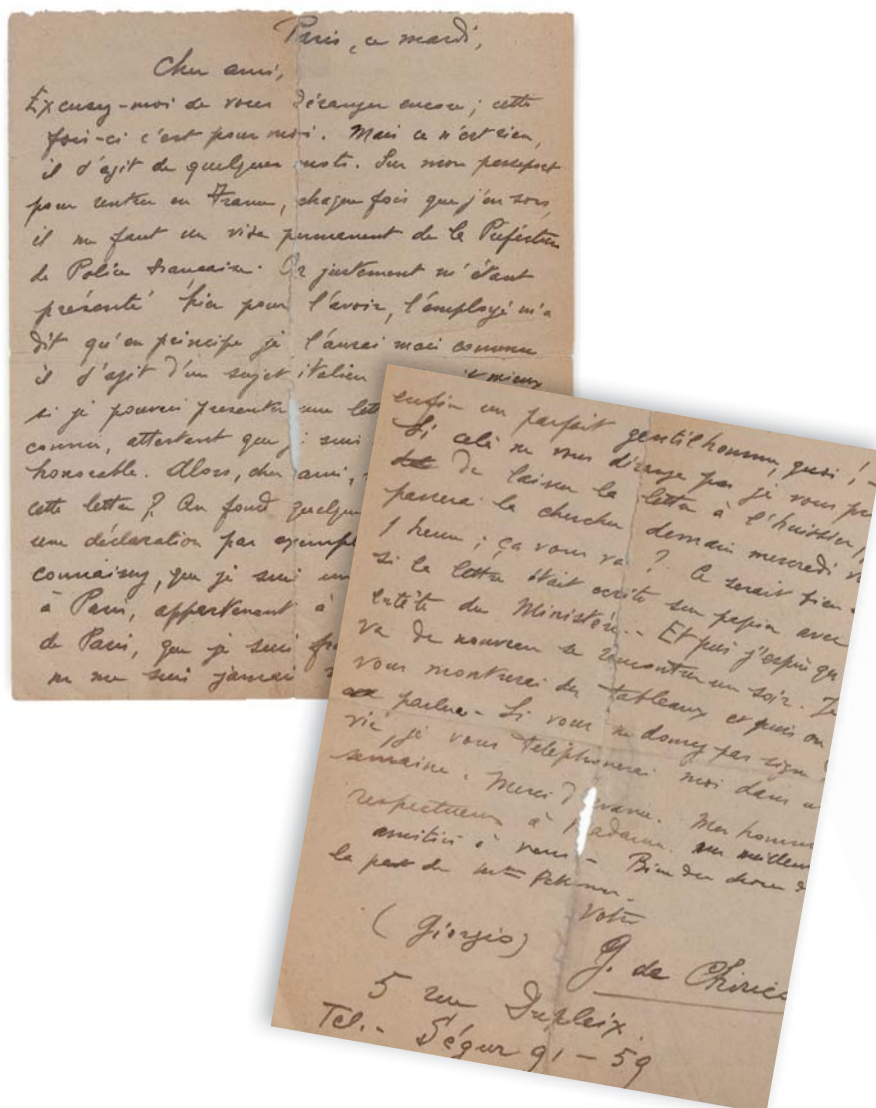 Paris, ce mardi,
Cher ami,
Excusez-moi de vous déranger encore ; cette
fois-ci c'est pour moi. Mais ce n'est rien,
il s'agit de quelques mots. Sur mon passeport
pour rentrer en France, chaque fois que j'en sors,
il me faut un visa permanent de la Préfecture
de Police française. Or justement m'étant
présenté hier pour l'avoir, l'employé m'a
dit qu'en principe je l'aurai mais comme
il s'agit d'un sujet italien mieux
si je pouvais presenter une lett
connu, attestant que je suis
honorable. Alors, cher ami,
cette lettre ? Au fond quelque
une déclaration par exemple
connaissez, que je suis un
à Paris, appartenant à
de Paris, que je suis
ne me suis jamais
enfin un parfait gentilhomme, quoi ! -
Si celà ne vous dérange pas je vous
de laisser la lettre à l'huissier,
passerai la chercher demain mercredi
1 heure ; ça vous va ? Ce serait bien
si la lettre était écrite sur papier avec
entête du Ministère. - Et puis j'espère qu
va de nouveau se rencontrer un soir. Je
vous montrerai des tableaux et puis on
parlera - Si vous ne donnez pas signe
vie, je vous téléphonerai moi dans u
semaine. Merci d'avance. Mes homm
respectueux à Madame. meilleu
amitiés à vous - Bien des choses d
la part de
Votre
(Giorgio) G. de Chiric
5 rue Dupleix.
Tel. - Ségur 91 - 59